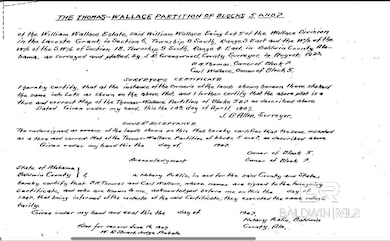 THE THOMAS-WALLACE PARTITION OF BLOCKS 5 AND 7
of the William Wallace Estate, said William Wallace being Lot 5 of the Wallace Division
in the Lacoste Grant in Section 6, Township 9 South, Range 3 East and the W½ of the
W½ of the S.W¼ of Section 18, Township 9 South, Range 4 East in Baldwin County Ala-
bama, as surveyed and platted, by J.E. Surveyor, in August, 1902.
D.A. Thomas, Owner of Block 7
Carl Wallace, Owner of Block 5.
SURVEYOR'S CERTIFICATE
I hereby certify, that at the instance of the Owners of the lands shown hereon, those stated
the same into Lots as shown on the above Plat, and I further certify that the above plat is a
true and correct Map of the Thomas-Wallace Partition of Blocks 5&7 as described above
Dated: Given under my hand, this the 12th day of April 1907.
J. D. Allen, Surveyor.
OWNERS ACCEPTANCE
The undersigned as owners of the lands shown on this Plat hereby certify that the same
as a true and correct Plat of the Thomas-Wallace Partition of Blocks 5 and 7, as described above.
Given under my hand this the day of 1907.
Owner of Block 5.
Owner of Block 7.
Acknowledgment
State of Alabama
Baldwin County } I, a Notary Public, in and for the said County and State,
hereby certify that D.A. Thomas and Carl Wallace, whose names are signed to the foregoing
certificate, and who are known to me, acknowledged before me on this the day of
1907, that being informed of the contents of the said Certificate, they executed the same volun-
tarily.
Given under my hand and seal this the day of 1907.
Notary Public, Baldwin
County, Ala.,
Filed for record June 14, 1907
W. D. Stuart, Judge Probate
BALDWIN MLS